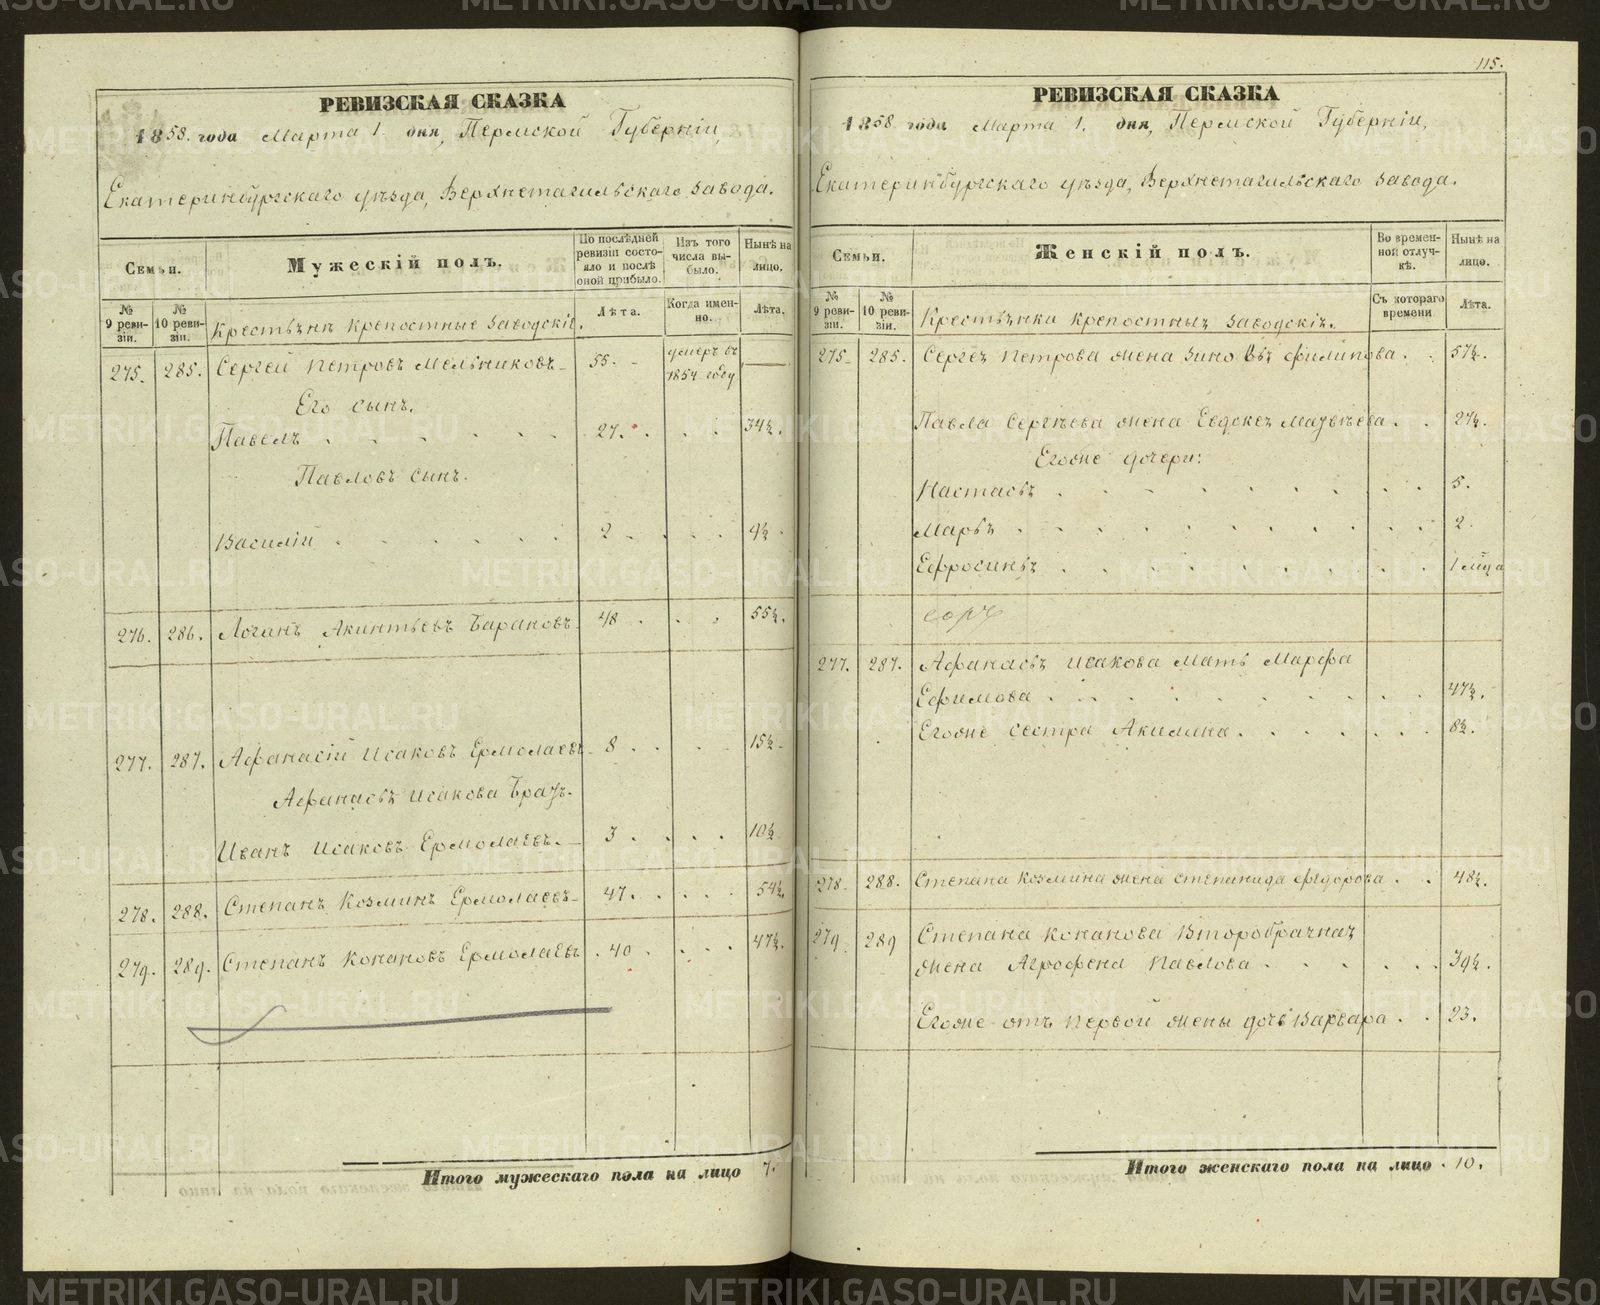 РЕВИЗСКАЯ СКАЗКА
1858. года Марта 1. дня, Пермской Губерніи,
Екатеринбургскаго уѣзда, Верхнетагильскаго завода.
Семьи.
Мужескій полъ.
По послѣдней ревизіи состояло и послѣ оной прибыло.
Изъ того числа выбыло.
Нынѣ на лицо.
№ 9 ревизіи.
№ 10 ревизіи.
Крестьянѣ крепостные заводскіе.
Лѣта.
Когда именно.
Лѣта.
275. 285. Сергей Петровъ Мельниковъ 55. умеръ въ 1854 году
Его сынъ.
Павелъ 27. 34½.
Павловъ сынъ.
Василій 2 9½
276. 286. Логинъ Акинтьевъ Барановъ 48 55½.
277. 287. Афанасій Исаковъ Ермолаевъ 8 15½
Афанасья Исакова братъ.
Иванъ Исаковъ Ермолаевъ. 3 10½
278. 288. Степанъ Козминъ Ермолаевъ 47. 54½.
279. 289. Степанъ Конановъ Ермолаевъ 40 47½.
Итого мужескаго пола на лицо 7.
115.
РЕВИЗСКАЯ СКАЗКА
1858. года Марта 1. дня, Пермской Губерніи,
Екатеринбургскаго уѣзда, Верхнетагильскаго завода.
Семьи.
Женскій полъ.
Во временной отлучкѣ.
Нынѣ на лицо.
№ 9 ревизіи.
№ 10 ревизіи.
Крестьянка крепостныя заводскія.
Съ котораго времени
Лѣта.
275 285. Сергея Петрова жена Зиновья Филипова 57½.
Павла Сергѣева жена Евдокея Матвѣева 27½.
Егоже дочери:
Настасья 5.
Марья 2.
Ефросинья 1 мѣца
277. 287. Афанасья Исакова мать Марфа
Ефимова 47½.
Егоже сестра Акилина 8½.
278. 288. Степана Козмина жена Степанида Федорова 48½.
279 289 Степана Конанова второбрачная
жена Агрофена Павлова 39½.
Егоже отъ первой жены дочь Варвара 23.
Итого женскаго пола на лицо 10.
METRIKI.GASO-URAL.RU